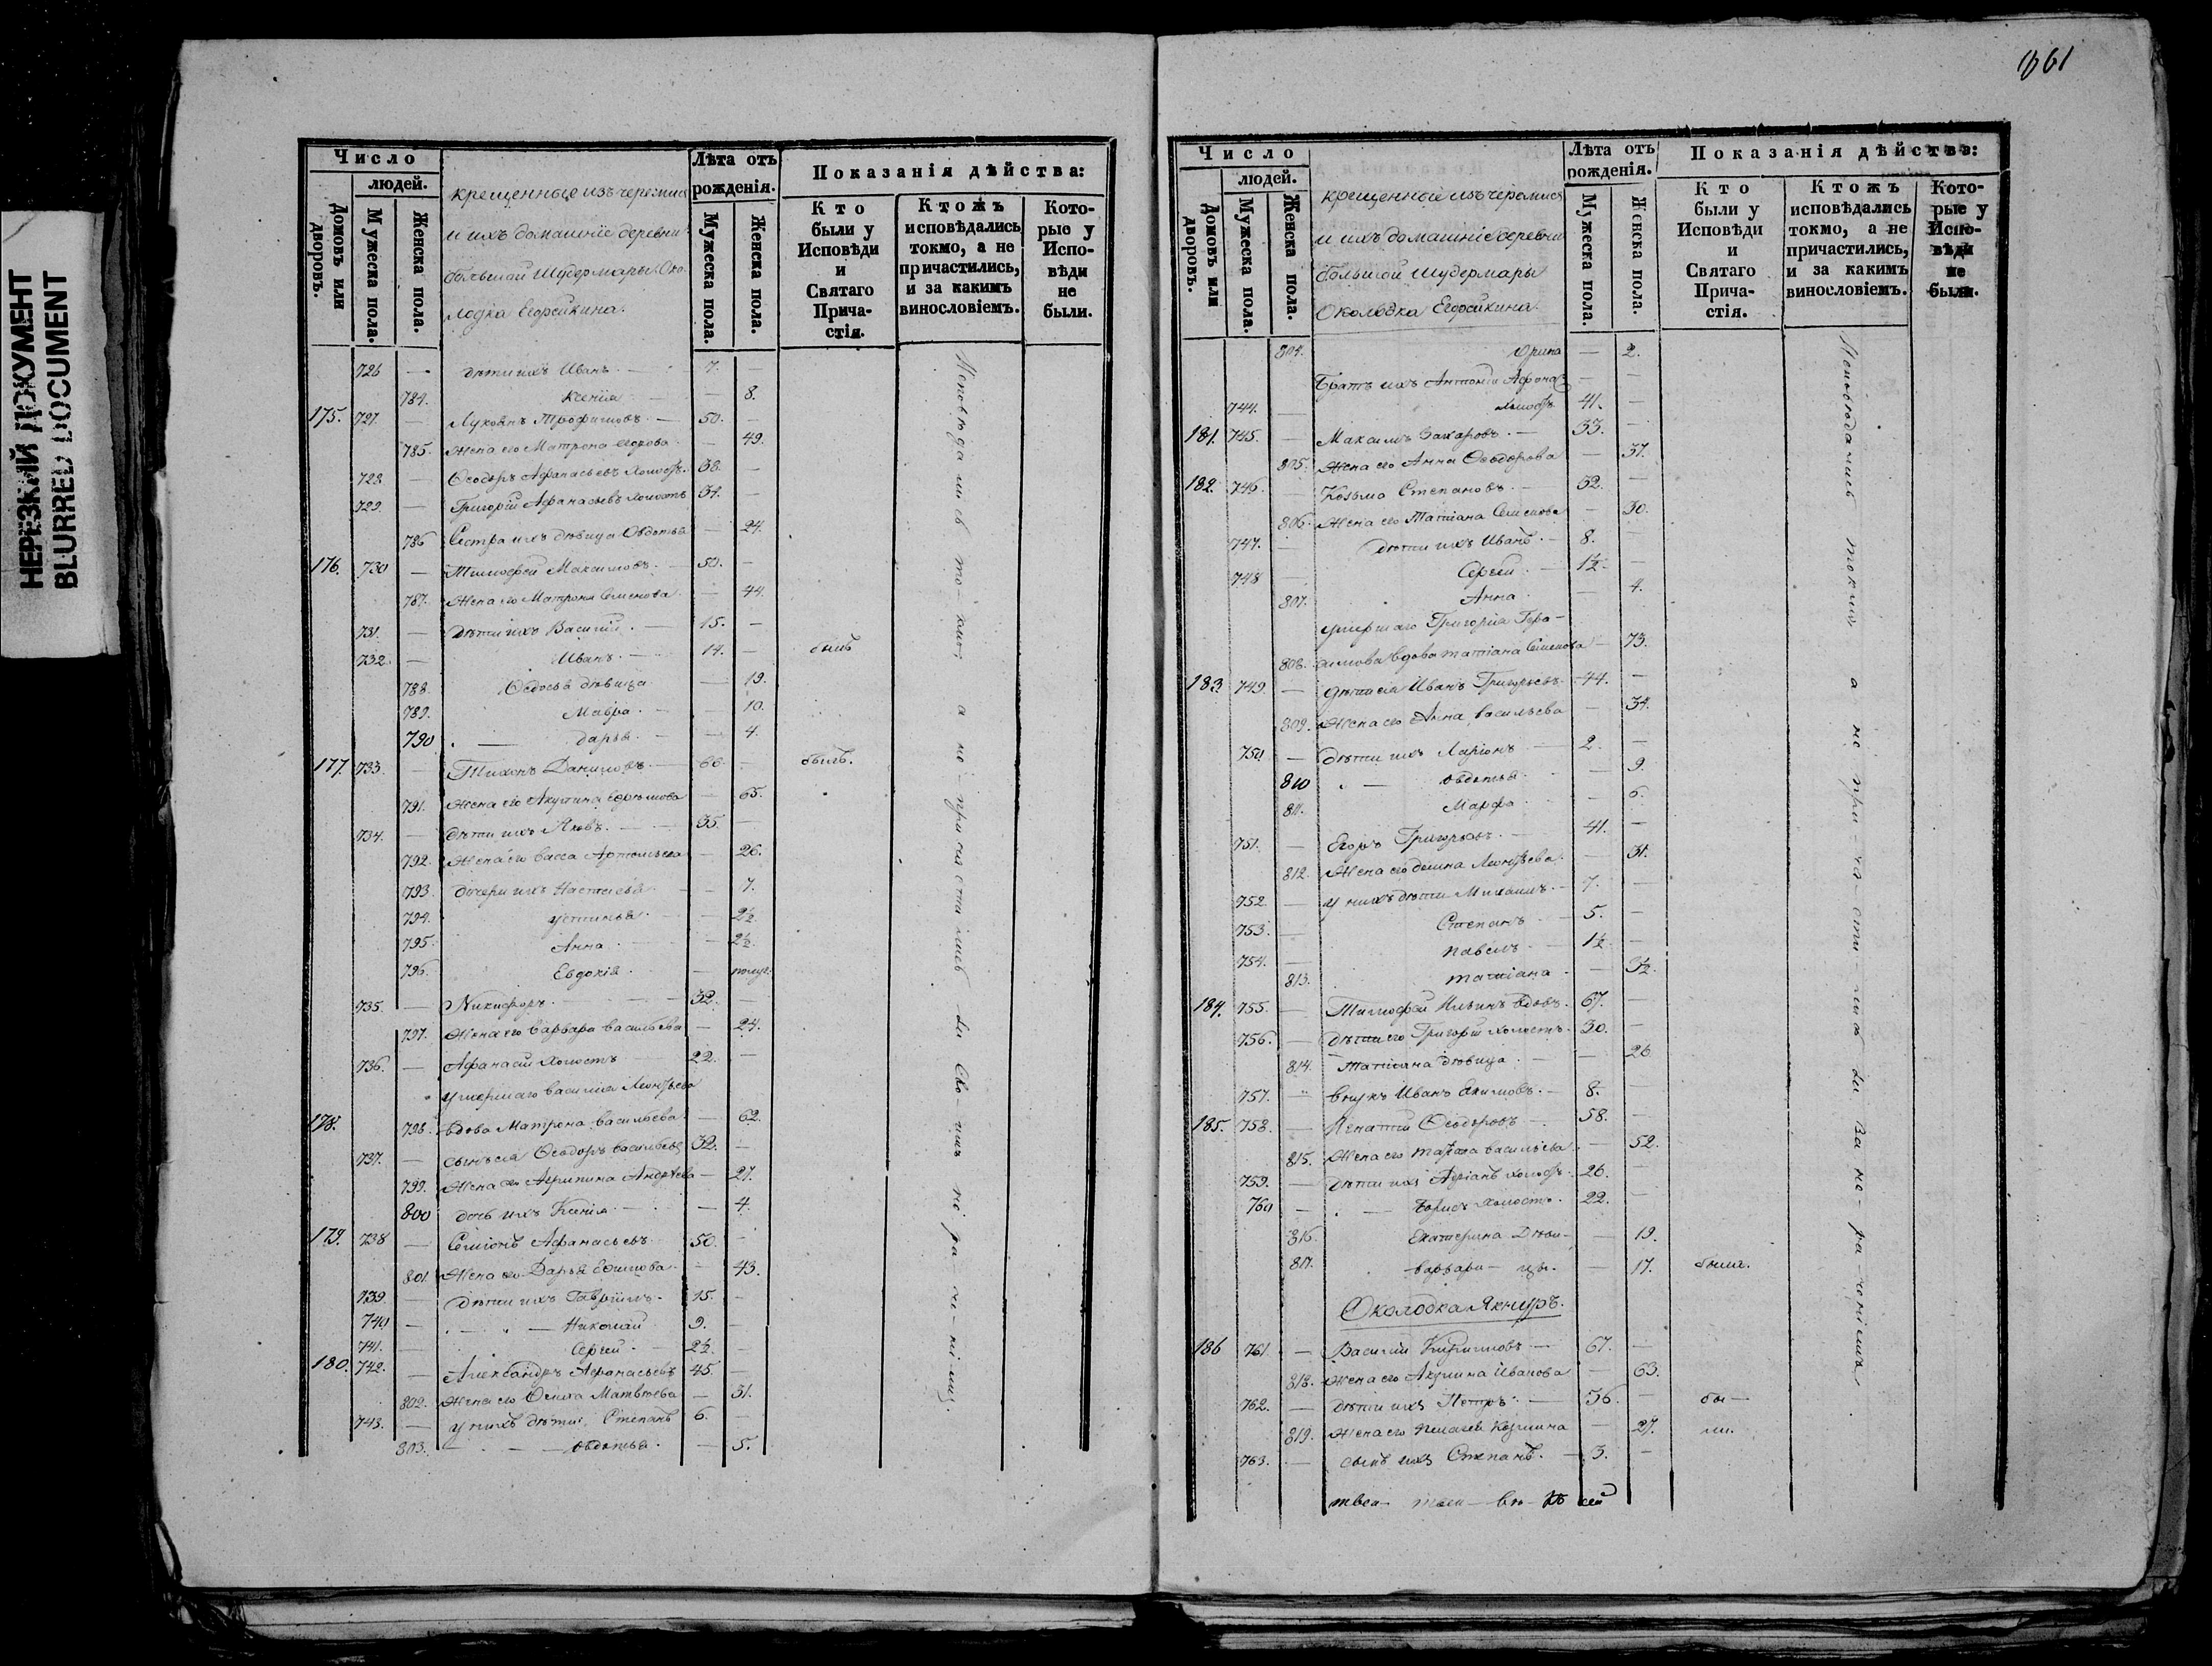 НЕРЕЗКИЙ ДОКУМЕНТ
BLURRED DOCUMENT
Число
людей.
Домовъ или дворовъ.
Мужеска пола.
Женска пола.
крещенные изъ черемисъ
и ихъ домашніе деревни
большой Шудермары Око-
лодка Егорайкина.
Лѣта отъ рожденія.
Мужеска пола.
Женска пола.
Показанія дѣйства:
Кто были у Исповѣди и Святаго Прича- стія.
Ктожъ исповѣдались токмо, а не причастились, и за какимъ винословіемъ.
Кото- рые у Испо- вѣди не были.
726 — дѣти ихъ Иванъ. — 7. —
784. Ксенія — 8.
175. 727. — Лукоянъ Трофимовъ. — 50. —
785. Жена его Матрона Егорова. — 49.
728. — Ѳеодоръ Афанасьевъ холостъ. 38. —
729. — Григорій Афанасьевъ холостъ 34. —
786 Сестра ихъ дѣвица Овдотья — 24.
176. 730 — Тимофей Максимовъ. — 50. —
787. Жена его Матрона Семенова — 44.
731. — дѣти ихъ Василій. — 15. —
732. — Иванъ. — 14. — былъ
788. Ѳедосья дѣвица — 19.
789. Мавра. — 10.
790 дарья. — 4.
177. 733. — Тихонъ Даниловъ. — 66 — былъ.
791. Жена его Акулина Ефремова — 65.
734. — дѣти ихъ Яковъ. — 35. —
792. Жена его Васса Артемьева — 26.
793. дочери ихъ Настасья — 7.
794. устинья. — 2½
795. Анна. — 2½.
796. Евдокія. — полуг.
735. — Никифоръ. — 32. —
797. Жена его Варвара Васильева — 24.
736. — Афанасій холостъ 22. —
умершаго Василія Леонтьева
178. 798. вдова Матрона Васильева. — 62.
737. — сынъ ея Ѳеодоръ Васильевъ 32. —
799. Жена его Агрипина Андреева — 27.
800 дочь ихъ Ксенія. — 4.
179. 738 — Семіонъ Афанасьевъ 50. —
801. Жена его Дарья Ефимова. — 43.
739. — дѣти ихъ Гавріилъ. 15. —
740 — Николай 9. —
741. — Сергей. 2½. —
180. 742. — Александръ Афанасьевъ 45. —
802. Жена его Матвѣева — 31.
743. — у нихъ дѣти: Степанъ 6. —
803. — овдотья. — 5.
Исповѣдались токмо а не причастились за своимъ нераченіемъ.
361
Число
людей.
Домовъ или дворовъ.
Мужеска пола.
Женска пола.
крещенные изъ черемисъ
и ихъ домашніе деревни
большой Шудермары
Околодка Егорайкина.
Лѣта отъ рожденія.
Мужеска пола.
Женска пола.
Показанія дѣйства:
Кто были у Исповѣди и Святаго Прича- стія.
Ктожъ исповѣдались токмо, а не причастились, и за какимъ винословіемъ.
Кото- рые у Испо- вѣди не были.
804. Ирина — 2.
братъ ихъ Антоній Афана —
744. — холостъ 41. —
181. 745. — Максимъ Захаровъ. — 33. —
805. Жена его Анна Ѳеодорова — 37.
182. 746. — Козьма Степановъ. — 32. —
806. Жена его Татіана Семенова — 30.
747. — дѣти ихъ Иванъ. — 8. —
748 — Сергей. 1½. —
807. Анна. — 4.
умершаго Григорія Гера-
808. симова вдова татіана Семенова — 73.
183. 749. — дѣти ея Иванъ Григорьевъ 44. —
809. Жена его Анна Васильева — 34.
750. — дѣти ихъ Ларіонъ — 2. —
810 овдотья. — 9.
811. Марфа. — 6.
751. — Егоръ Григорьевъ. — 41. —
812. Жена его Леонтьева. — 31.
752. — у нихъ дѣти Михаилъ. 7. —
753. — Степанъ 5. —
754. — павелъ. 1½ —
813. татіана. — 3½.
184. 755. — Тимофей Ильинъ вдовъ. 67. —
756. — дѣти его Григорій холостъ. 30. —
814. Татіана дѣвица. — 26
757. — внукъ Иванъ Акимовъ. — 8. —
185. 758. — Игнатій Ѳеодоровъ — 58. —
815. Жена его Васильева — 52.
759. — дѣти ихъ Адріанъ холостъ. 26. —
760 — Борисъ холостъ. 22. —
816. Екатерина Дѣви- — 19.
817. варвара — цы. — 17. были.
Околодка Якнуръ.
186 761. — Василій Кириловъ — 67. —
818. Жена его Акулина Иванова — 63.
762. — дѣти ихъ Петръ. — 36. — бы-
819. Жена его Пелагея Козмина — 27. ли.
763. — сынъ ихъ Степанъ. — 3. —
Исповѣдались токмо а не причастились за нераченіемъ